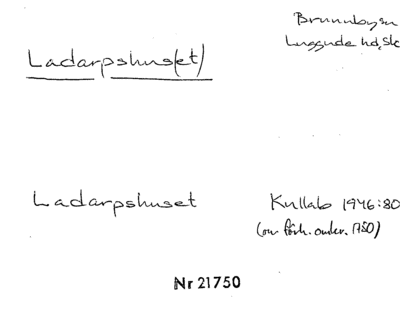 Brunnby sn
Luggude hd, Sk
Ladarpshus(et)
Ladarpshuset
Kullab 1946:80
(om förh. under. 1750)
Nr 21750